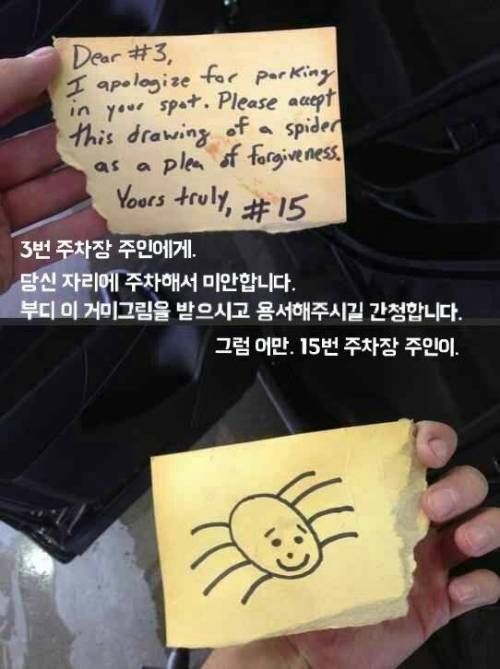 Dear #3,
I apologize for parking
in your spot. Please accept
this drawing of a spider
as a plea of forgiveness.
Yours truly, #15
3번 주차장 주인에게.
당신 자리에 주차해서 미안합니다.
부디 이 거미그림을 받으시고 용서해주시길 간청합니다.
그럼 이만. 15번 주차장 주인이.